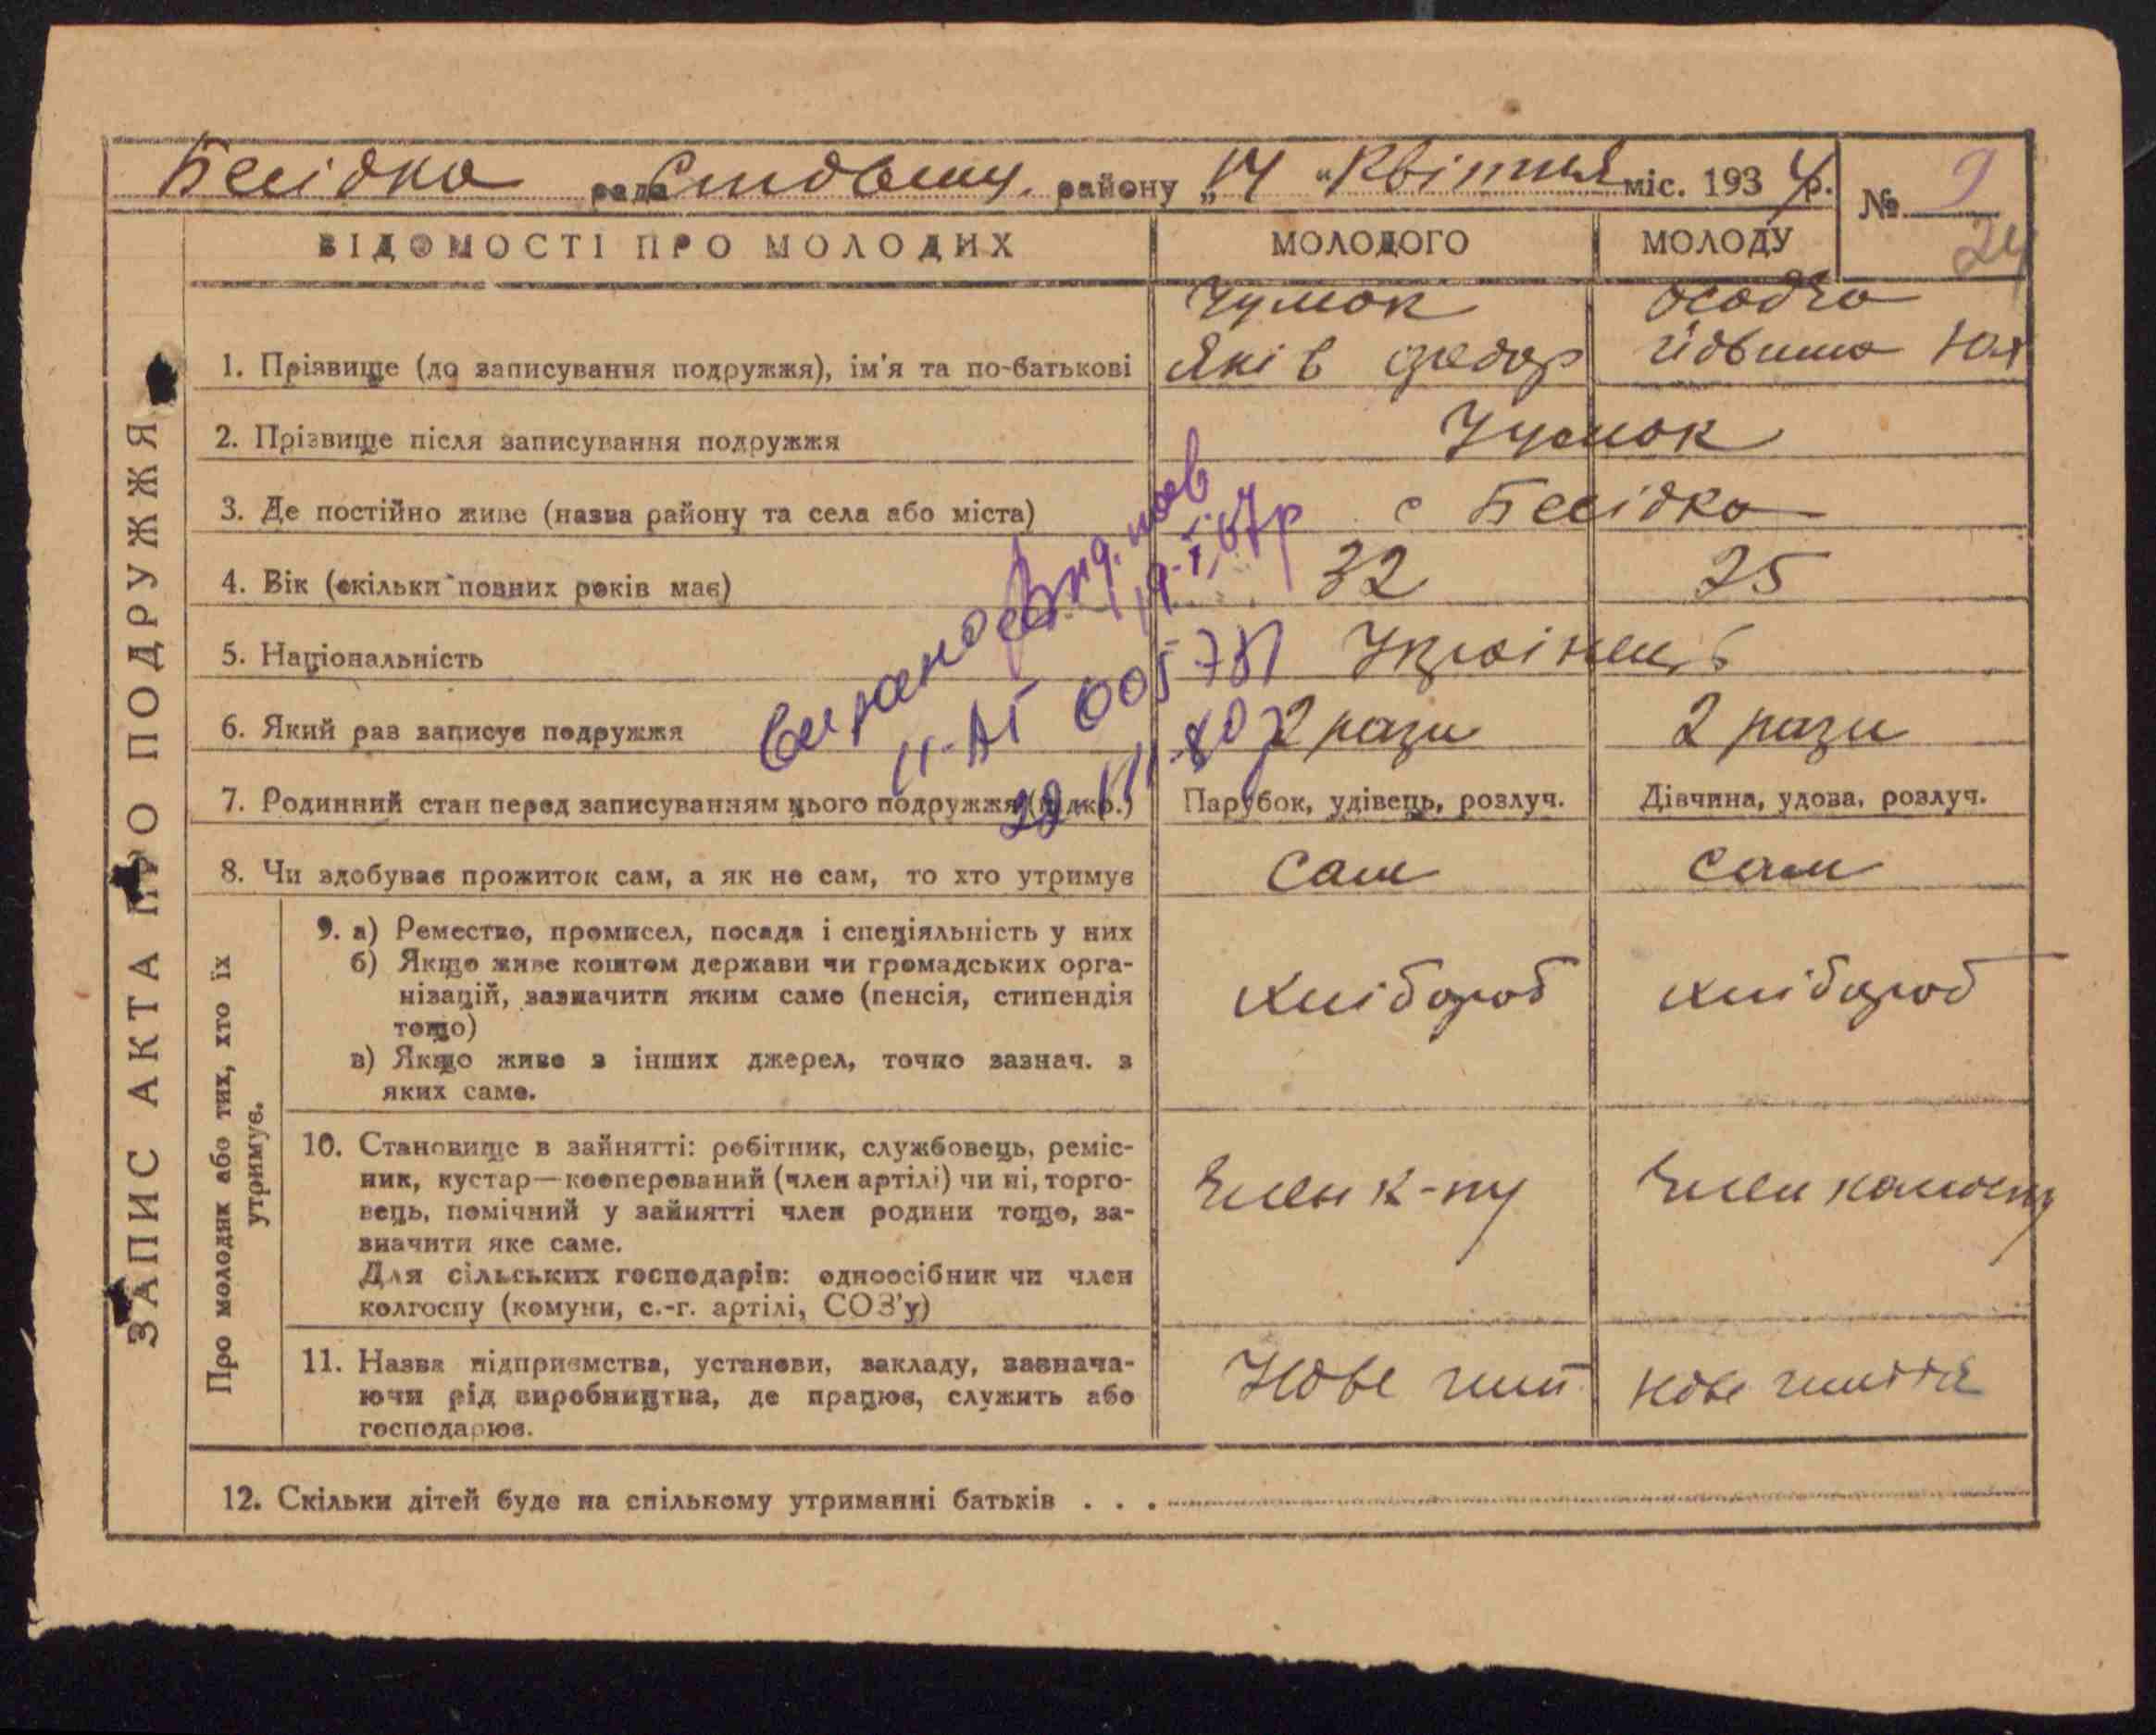 Бесідка рада Ставищ. району „14 “ Квітня міс. 1934 р.
№ 9
24
ВІДОМОСТІ ПРО МОЛОДИХ
МОЛОДОГО
МОЛОДУ
ЗАПИС АКТА ПРО ПОДРУЖЖЯ
1. Прізвище (до записування подружжя), ім'я та по-батькові
Чумак
Яків Федор
Осадча
2. Прізвище після записування подружжя
Чумак
3. Де постійно живе (назва району та села або міста)
с Бесідка
4. Вік (скільки повних років має)
32
25
5. Національність
Українець
6. Який раз записує подружжя
2 рази
2 рази
7. Родинний стан перед записуванням цього подружжя (підкр.)
Парубок, удівець, розлуч.
Дівчина, удова, розлуч.
8. Чи здобуває прожиток сам, а як не сам, то хто утримує
Сам
Сам
Про молодих або тих, хто їх
утримує.
9. а) Ремество, промисел, посада і спеціяльність у них
б) Якщо живе коштом держави чи громадських орга-
нізацій, зазначити яким саме (пенсія, стипендія
тощо)
в) Якщо живе з інших джерел, точно зазнач. з
яких саме.
хлібороб
хлібороб
10. Становище в зайнятті: робітник, службовець, реміс-
ник, кустар—кооперований (член артілі) чи ні, торго-
вець, помічний у зайнятті член родини тощо, за-
значити яке саме.
Для сільських господарів: одноосібник чи член
колгоспу (комуни, с.-г. артілі, СОЗ'у)
Член к-пу
Член
11. Назва підприємства, установи, закладу, зазнача-
ючи рід виробництва, де працює, служить або
господарює.
Нове жит
Нове життя
12. Скільки дітей буде на спільному утриманні батьків . . .